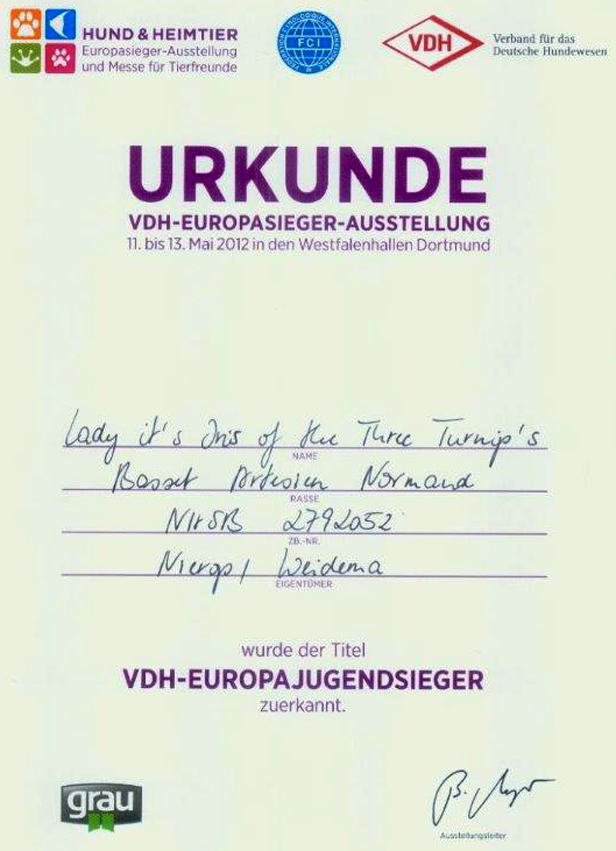 HUND & HEIMTIER
Europasieger-Ausstellung
und Messe für Tierfreunde
FCI
VDH
Verband für das
Deutsche Hundewesen
URKUNDE
VDH-EUROPASIEGER-AUSSTELLUNG
11. bis 13. Mai 2012 in den Westfalenhallen Dortmund
Lady it's Iris of the Three Turnip's
NAME
Basset Artesien Normand
RASSE
NHSB 2792052
ZB.-NR.
Weidema
EIGENTÜMER
wurde der Titel
VDH-EUROPAJUGENDSIEGER
zuerkannt.
grau
Ausstellungsleiter